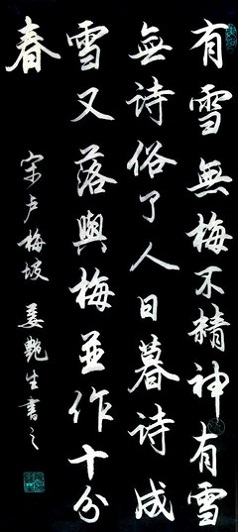 有雪無梅不精神有雪
無詩俗了人日暮詩成
雪又落與梅並作十分
春
宋卢梅坡 姜艷生書之